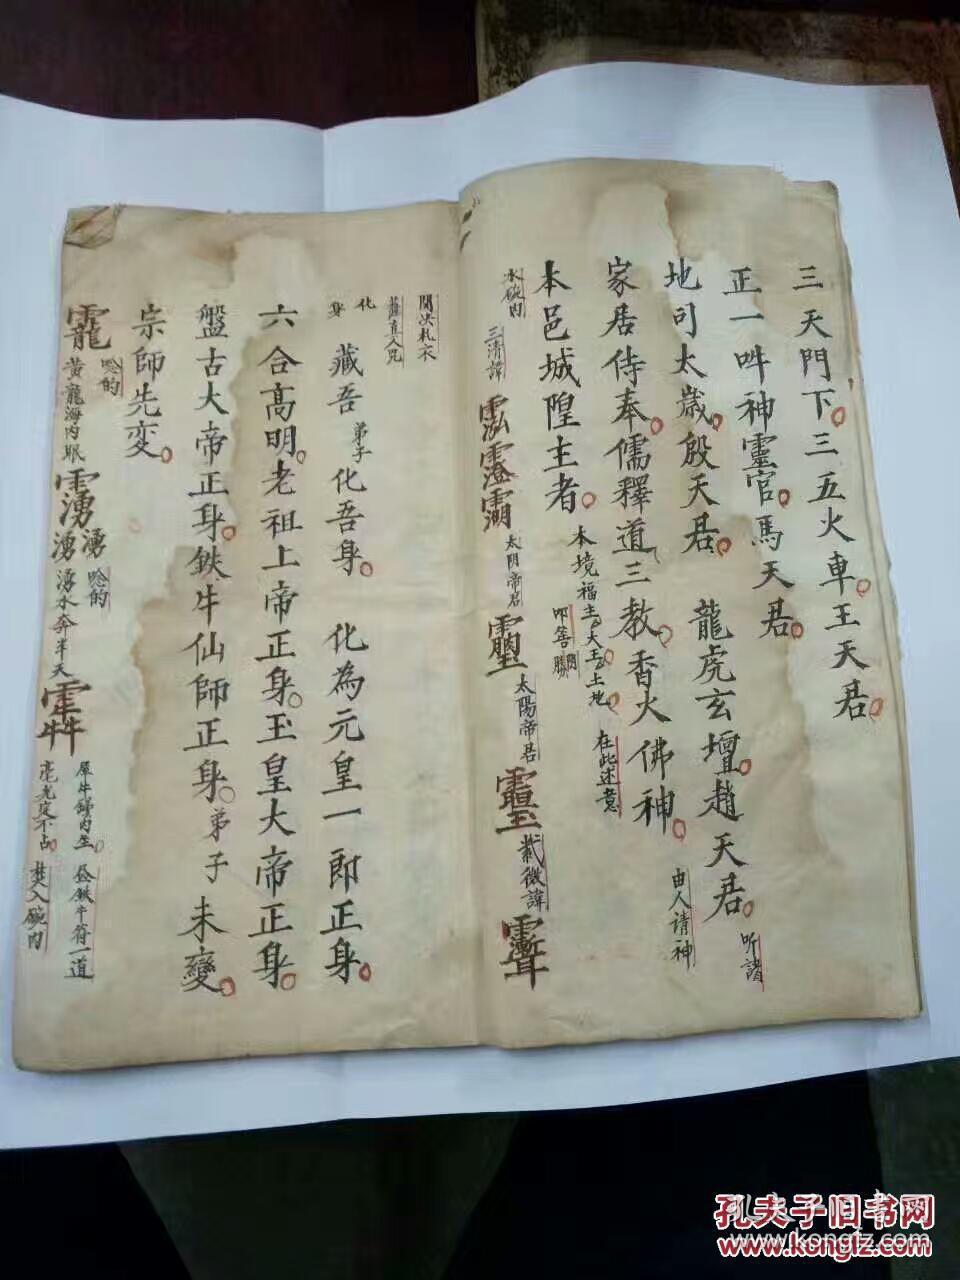 三天門下。三五火車。王天君。
正一吽神靈官。馬天君。
地司太歲。殷天君。龍虎玄壇。趙天君。
听諸
家居侍奉。儒釋道三教。香火佛神。
由人請神
本邑城隍主者。本境福主。大王。土地。
在此述意
水碗內
三清諱
太阴帝君
太陽帝君
化身
藏吾弟子化吾身。化為元皇一郎正身。
六合高明。老祖上帝正身。玉皇大帝正身。
盤古大帝正身。鉄牛仙師正身。弟子未變。
宗師先変。
唸的
黄龍海內眠
湧湧
唸的
湧水奔半天
犀牛歸內坐。
焚入碗內
孔夫子旧书网
www.kongfz.com